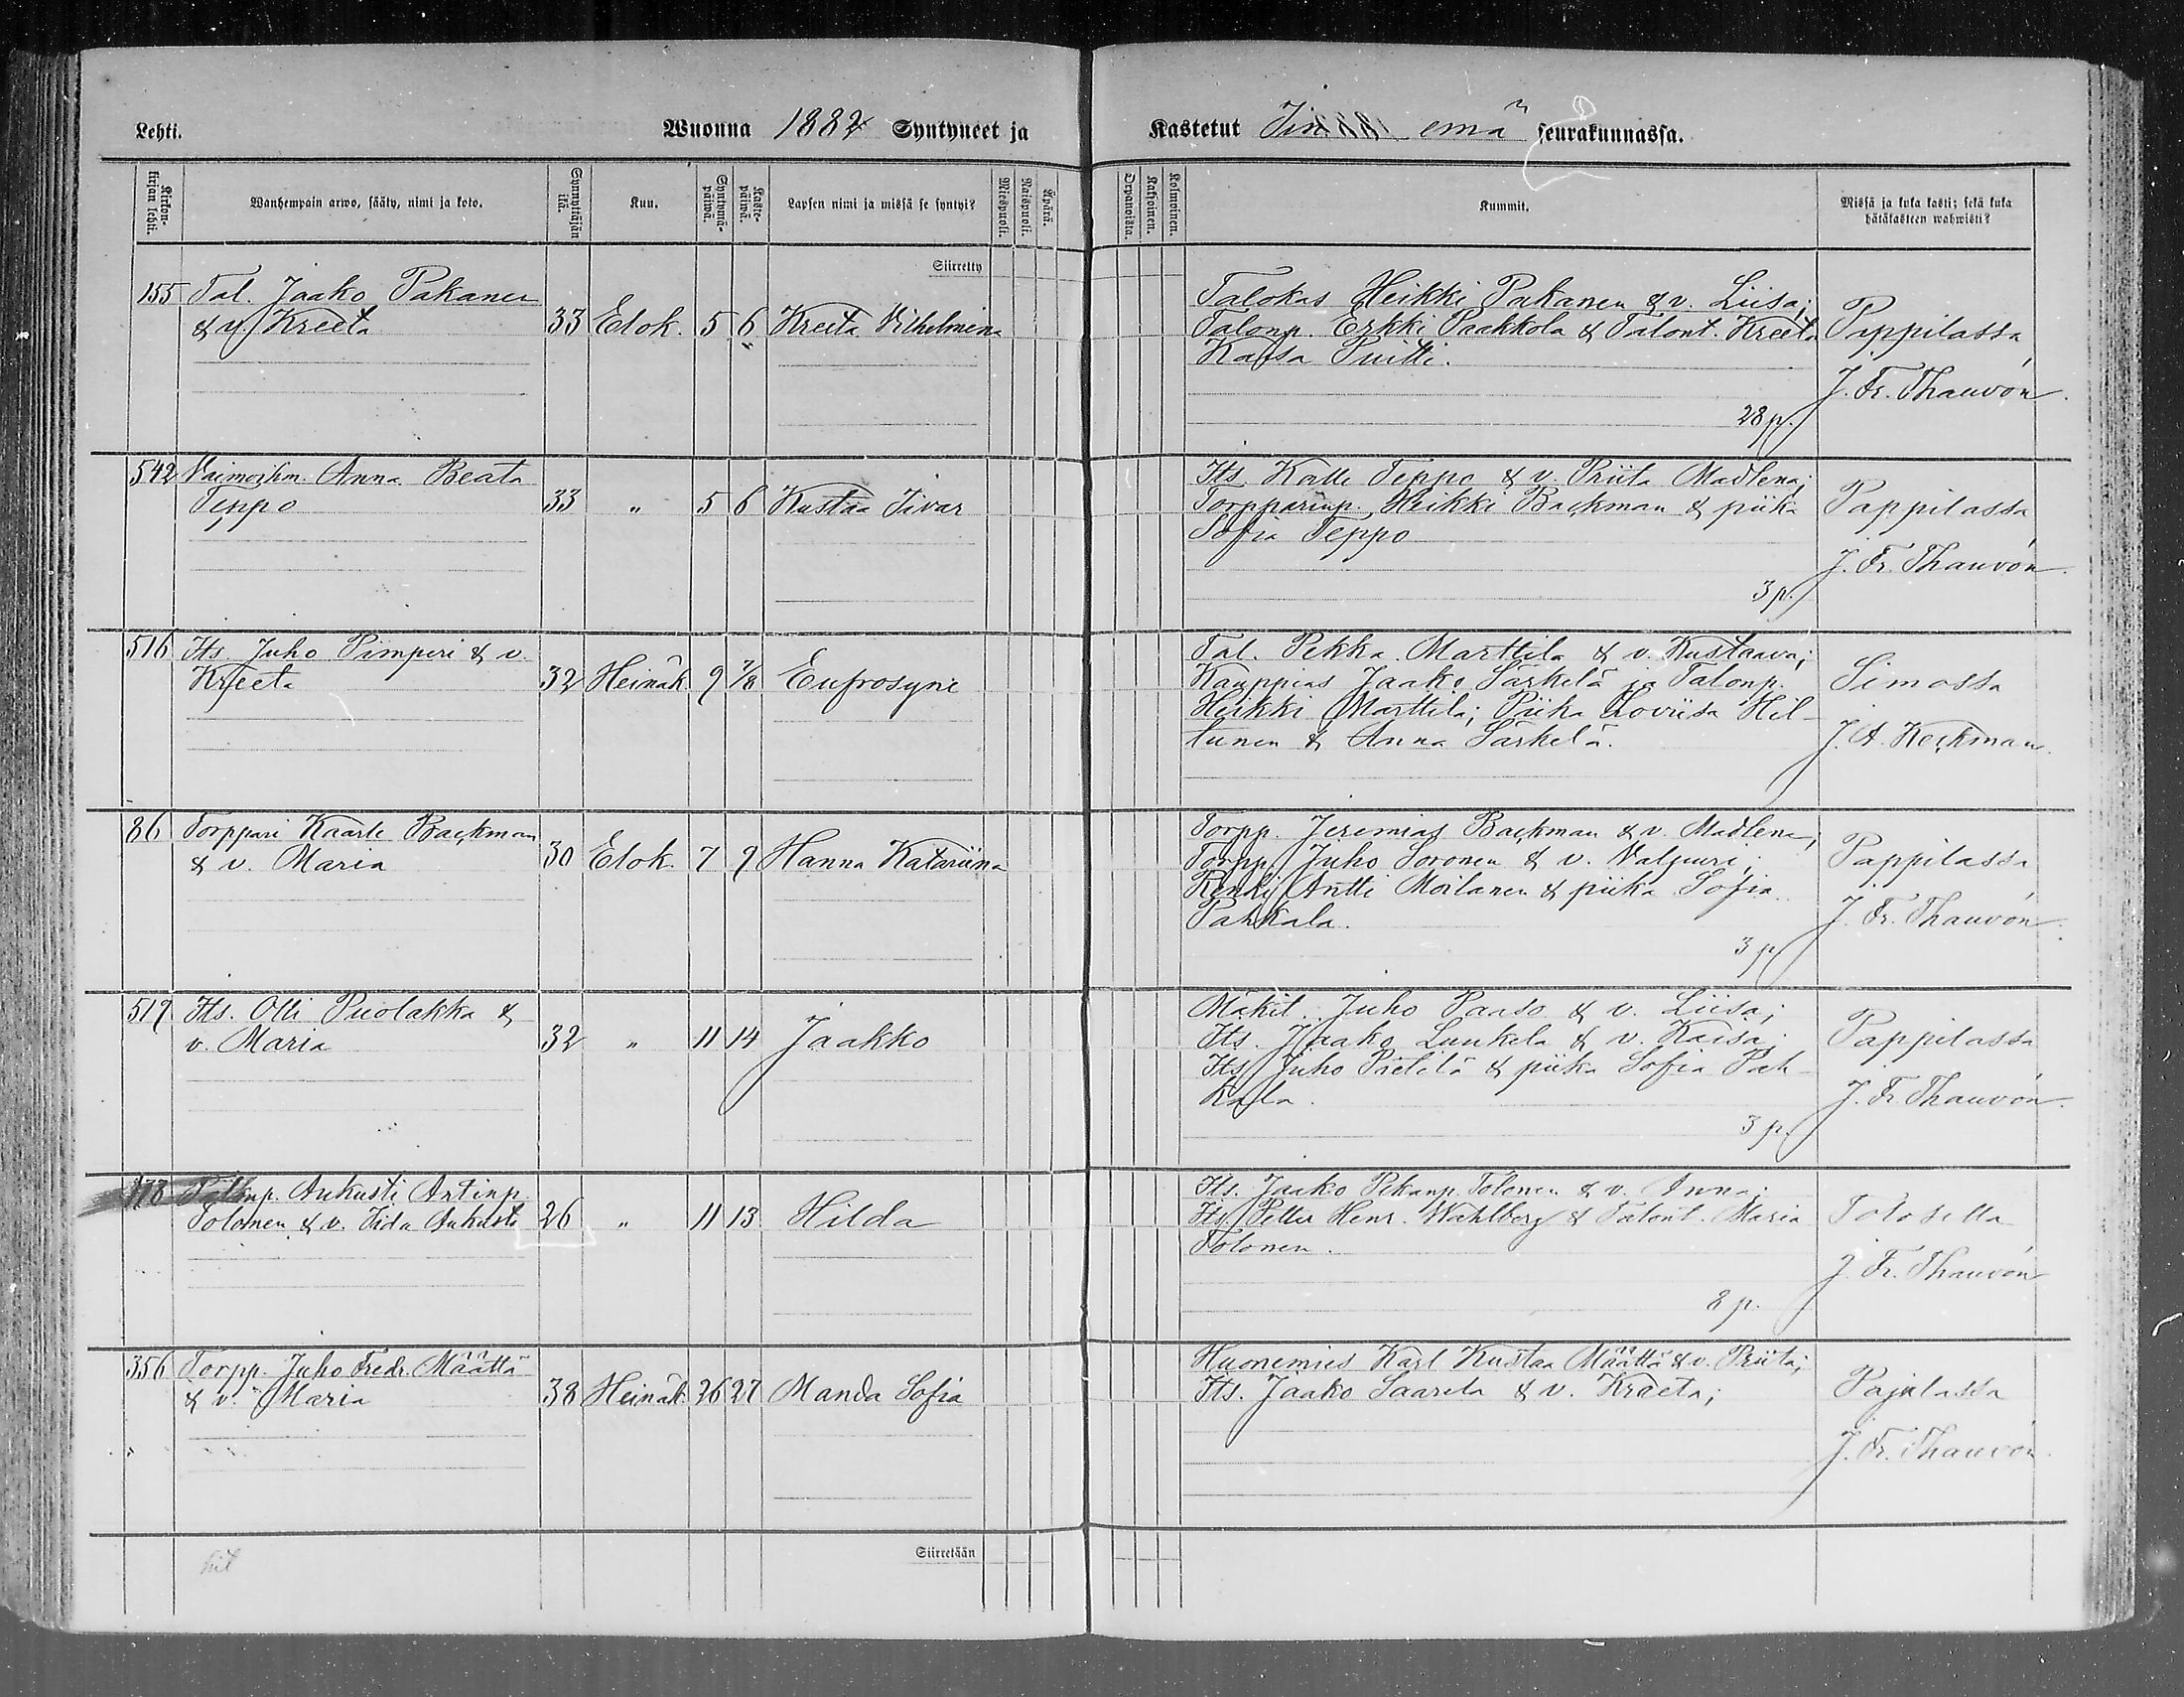 Lehti.
Wuonna 1882 Syntyneet ja
Kastetut Iin emä seurakunnassa.
Kirkonkirjan lehti.
Wanhempain arwo, sääty, nimi ja koto.
Synnyttäjän ikä.
Kuu.
Syntymäpäiwä.
Kastepäiwä.
Lapsen nimi ja missä se syntyi?
Miespuoli.
Naispuoli.
Äpärä.
Orpanoista.
Kaksoinen.
Kolmoinen.
Kummit.
Missä ja kuka kasti; sekä kuka hätäkasteen wahwisti?
Siirretty
155 Tal. Jaako Pakanen
& v. Kreeta 33 Elok. 5 6 Kreeta Vilhelmina
Talokas Heikki Pakanen & v. Liisa;
Talonp. Erkki Paakkola & Talont. Kreeta
Kaisa Puitti.
28 p.
Pappilassa
J. Fr. Thauvón
542 Vaimoihm. Anna Beata
Teppo 33 " 5 6 Kustaa Iivar
Its. Kalle Teppo & v. Priita Madlena;
Torpparinp. Heikki Backman & piika
Sofia Teppo
3 p.
Pappilassa
J. Fr. Thauvón
516 Its. Juho Pimperi & v.
Kreeta 32 Heinäk 9 7/8 Eufrosyne
Tal. Pekka Marttila & v. Kustaava;
Kauppias Jaako Särkelä ja Talonp.
Heikki Marttila; Piika Loviisa Hil-
tunen & Anna Särkelä.
Simossa
J. A. Heickman
86 Torppari Kaarle Backman
& v. Maria 30 Elok. 7 9 Hanna Katariina
Torpp. Jeremias Backman & v. Madlena;
Torpp. Juho Soronen & v. Valpuri;
Renki Antti Moilanen & piika Sofia
Pahkala.
3 p.
Pappilassa
J. Fr. Thauvón
519 Its. Olli Puolakka &
v. Maria 32 " 11 14 Jaakko
Mäkit. Juho Paaso & v. Liisa;
Its. Jaako Luukela & v. Kaisa;
Its. Juho Pietilä & piika Sofia Pah-
kala.
3 p.
Pappilassa
J. Fr. Thauvón
178 Talonp. Aukusti Antinp.
Tolonen & v. Iida Aukusta 26 " 11 13 Hilda
Its. Jaako Pekanp. Tolonen & v. Anna;
Its. Petter Henr. Wahlberg & Talont. Maria
Tolonen.
8 p.
Tolosella
J. Fr. Thauvón
356 Torpp. Juho Fredr. Määttä
& v. Maria 38 Heinäk. 26 27 Manda Sofia
Huonemies Karl Kustaa Määttä & v. Priita;
Its. Jaako Saarela & v. Kraeta;
Pajalassa
J. Fr. Thauvón
Siirretään